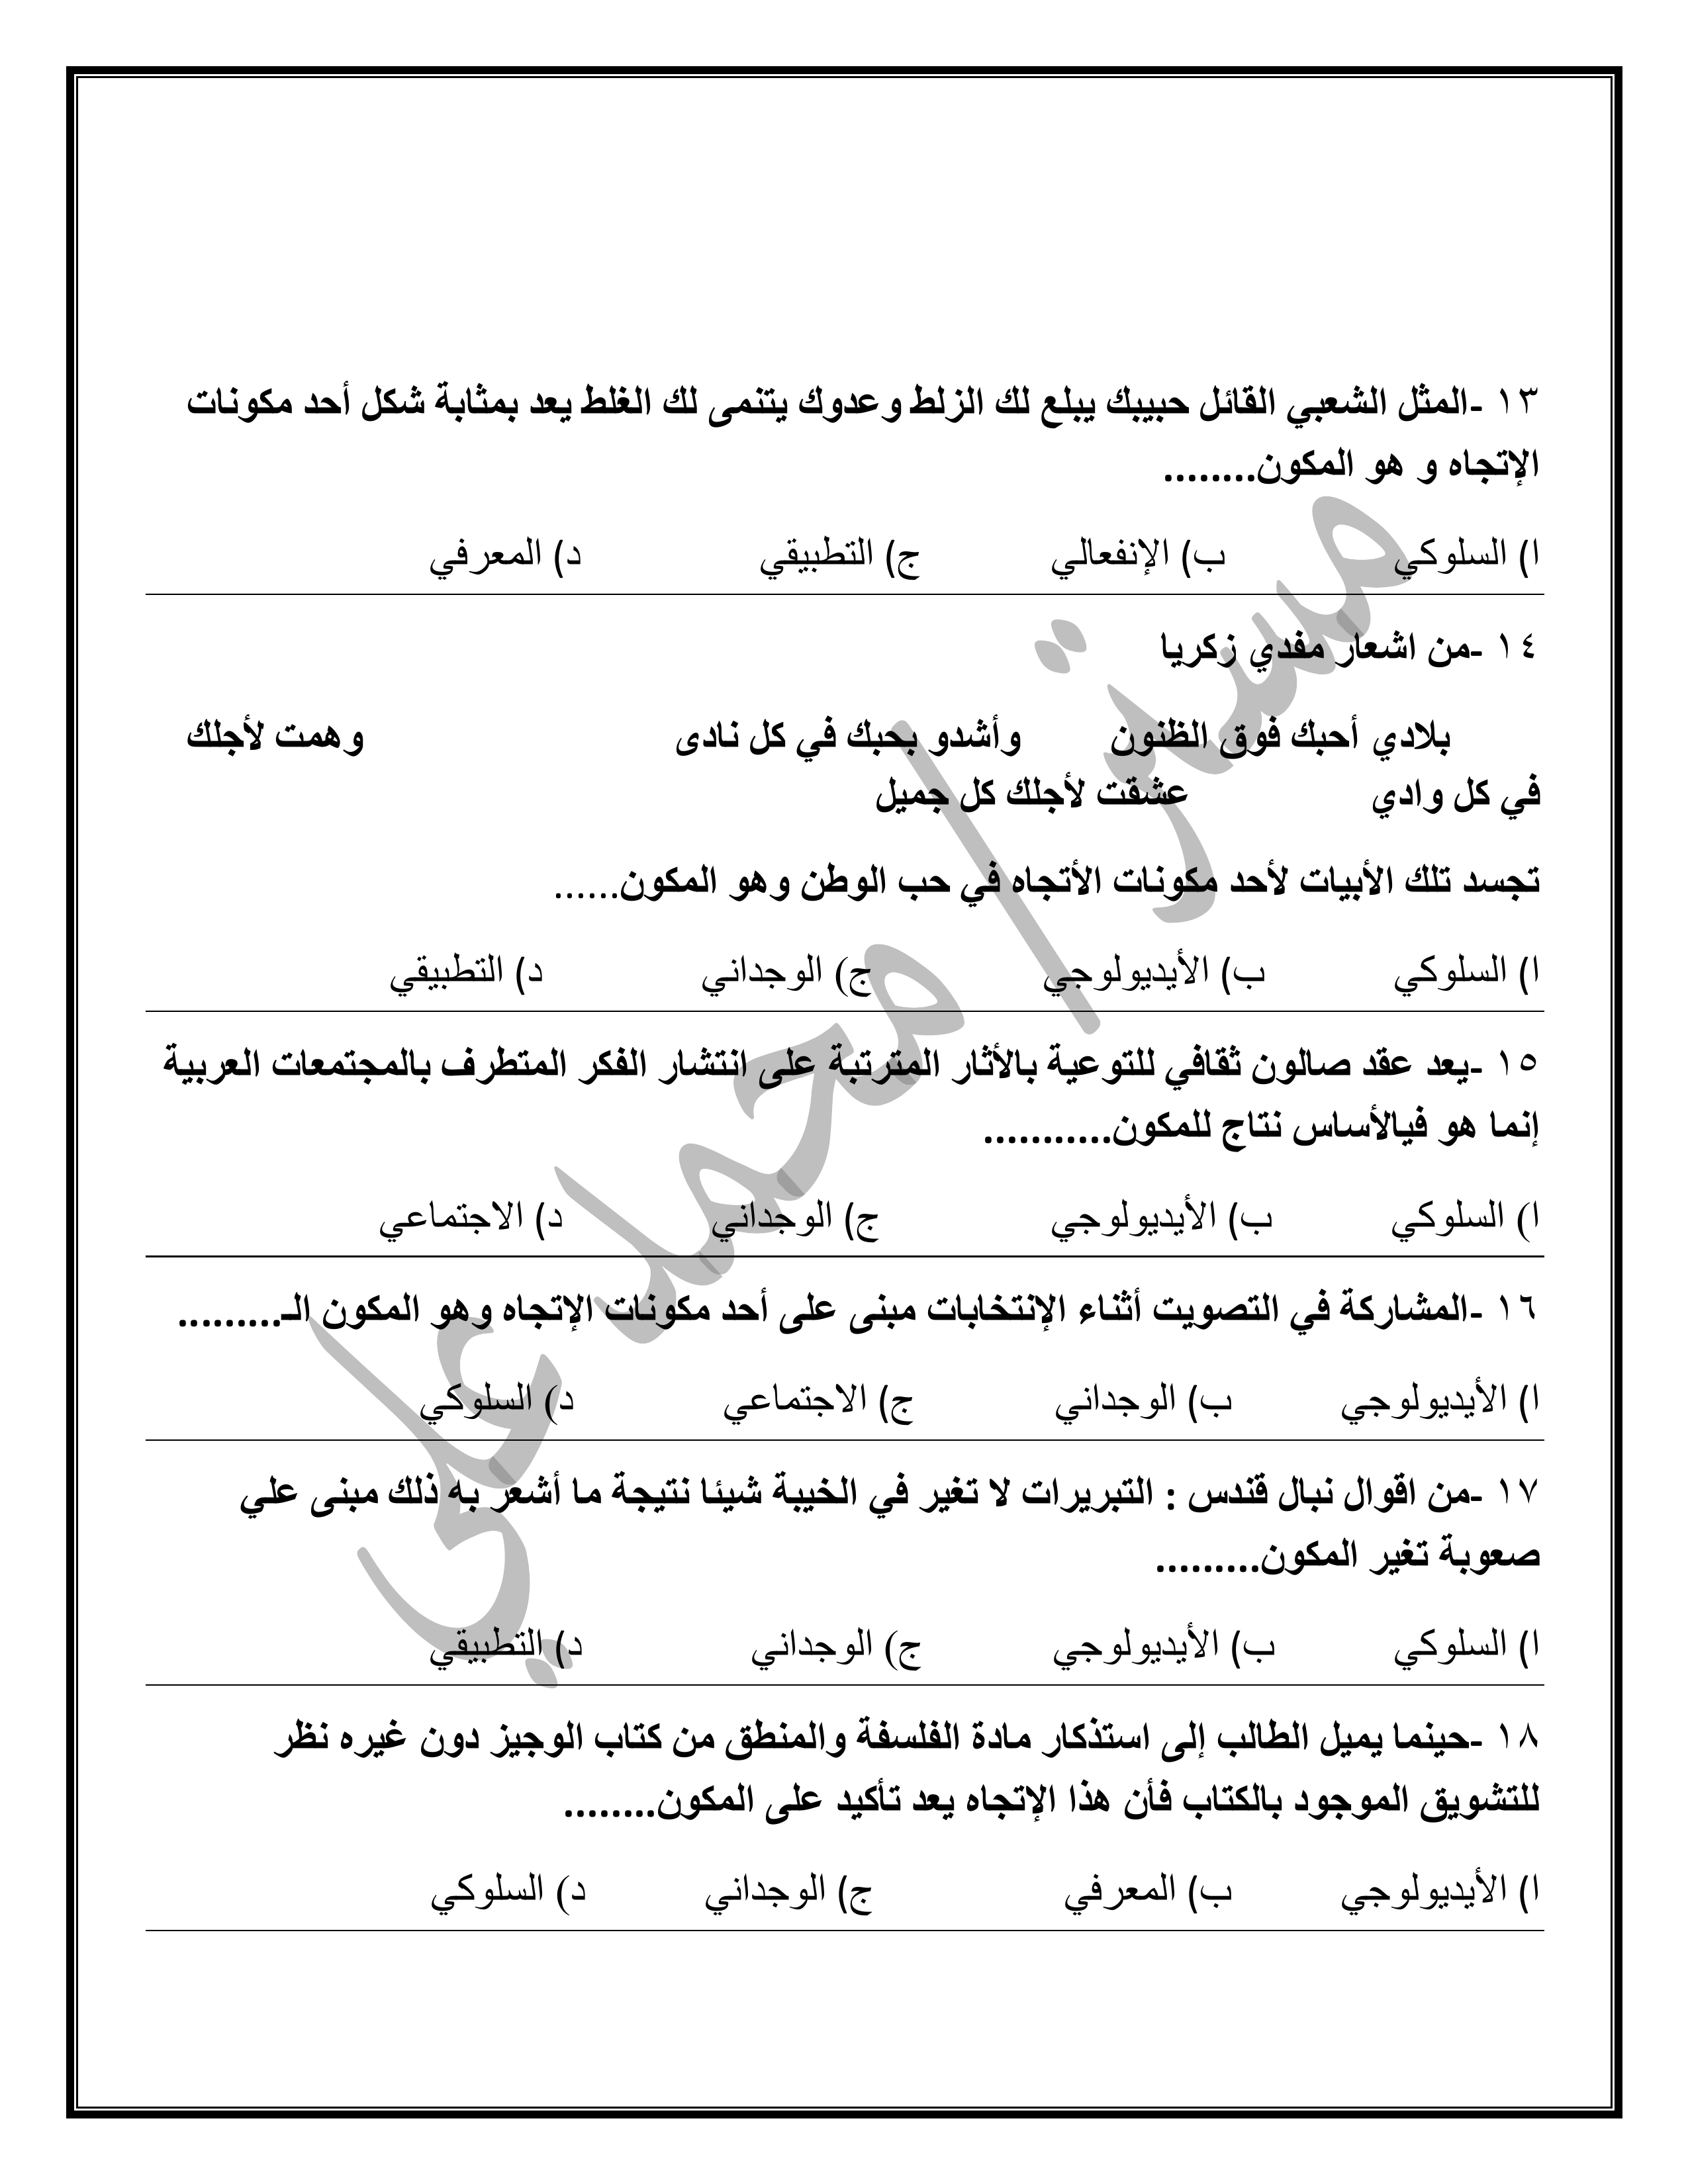 ١٣ -المثل الشعبي القائل حبيبك يبلع لك الزلط وعدوك يتنمى لك الغلط يعد بمثابة شكل أحد مكونات
الإتجاه و هو المكون........
ا) السلوكي ب) الإنفعالي ج) التطبيقي د) المعرفي
١٤ -من اشعار مفدي زكريا
بلادي أحبك فوق الظنون وأشدو بحبك في كل نادى وهمت لأجلك
في كل وادي عشقت لأجلك كل جميل
تجسد تلك الأبيات لأحد مكونات الأتجاه في حب الوطن وهو المكون......
ا) السلوكي ب) الأيديولوجي ج) الوجداني د) التطبيقي
١٥ -يعد عقد صالون ثقافي للتوعية بالأثار المترتبة على انتشار الفكر المتطرف بالمجتمعات العربية
إنما هو فيالأساس نتاج للمكون...........
ا) السلوكي ب) الأيديولوجي ج) الوجداني د) الاجتماعي
١٦ -المشاركة في التصويت أثناء الإنتخابات مبنى على أحد مكونات الإتجاه وهو المكون الـ.........
ا) الأيديولوجي ب) الوجداني ج) الاجتماعي د) السلوكي
١٧ -من اقوال نبال قندس : التبريرات لا تغير في الخيبة شيئا نتيجة ما أشعر به ذلك مبنى علي
صعوبة تغير المكون.........
ا) السلوكي ب) الأيديولوجي ج) الوجداني د) التطبيقي
١٨ -حينما يميل الطالب إلى استذكار مادة الفلسفة والمنطق من كتاب الوجيز دون غيره نظر
للتشويق الموجود بالكتاب فأن هذا الإتجاه يعد تأكيد على المكون........
ا) الأيديولوجي ب) المعرفي ج) الوجداني د) السلوكي
مستر/ محمد علي